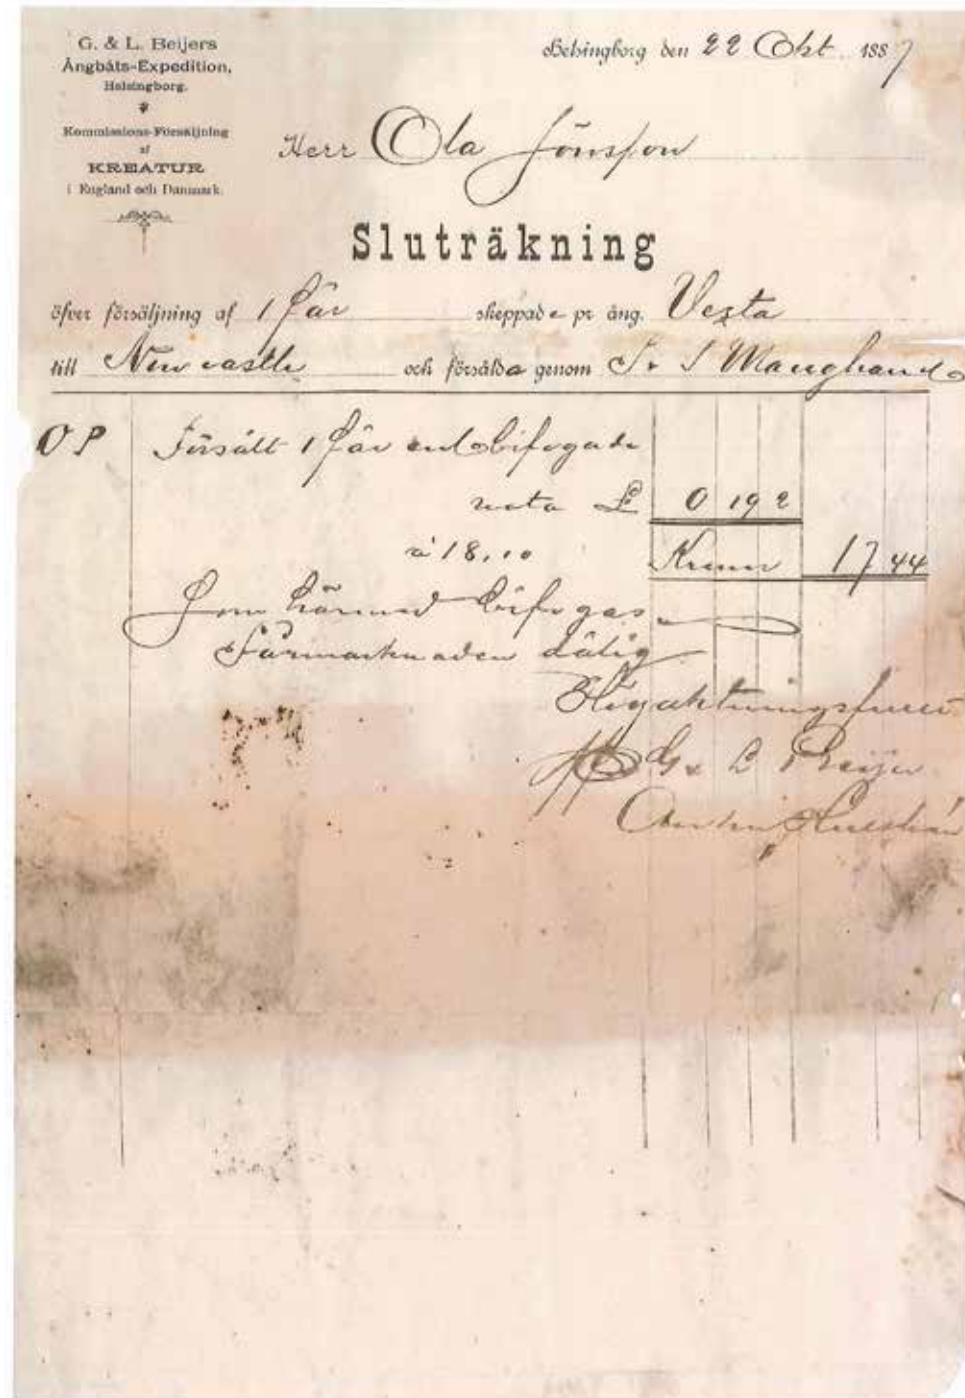 G. & L. Beijers
Ångbåts-Expedition,
Helsingborg.
Kommissions-Försäljning
af
KREATUR
i England och Danmark.
Helsingborg den 22 Okt. 1887
Herr Ola Jönsson
Sluträkning
öfver försäljning af 1 får skeppade pr ång. Vesta
till Newcastle och försålda genom
O P Försålt 1 får enl bifogade
nota £ 0 19 2
à 18,10 Kronor 17 44
Som härmed bifogas
Fårmarknaden dålig
Högaktningsfullt
G & L Beijer